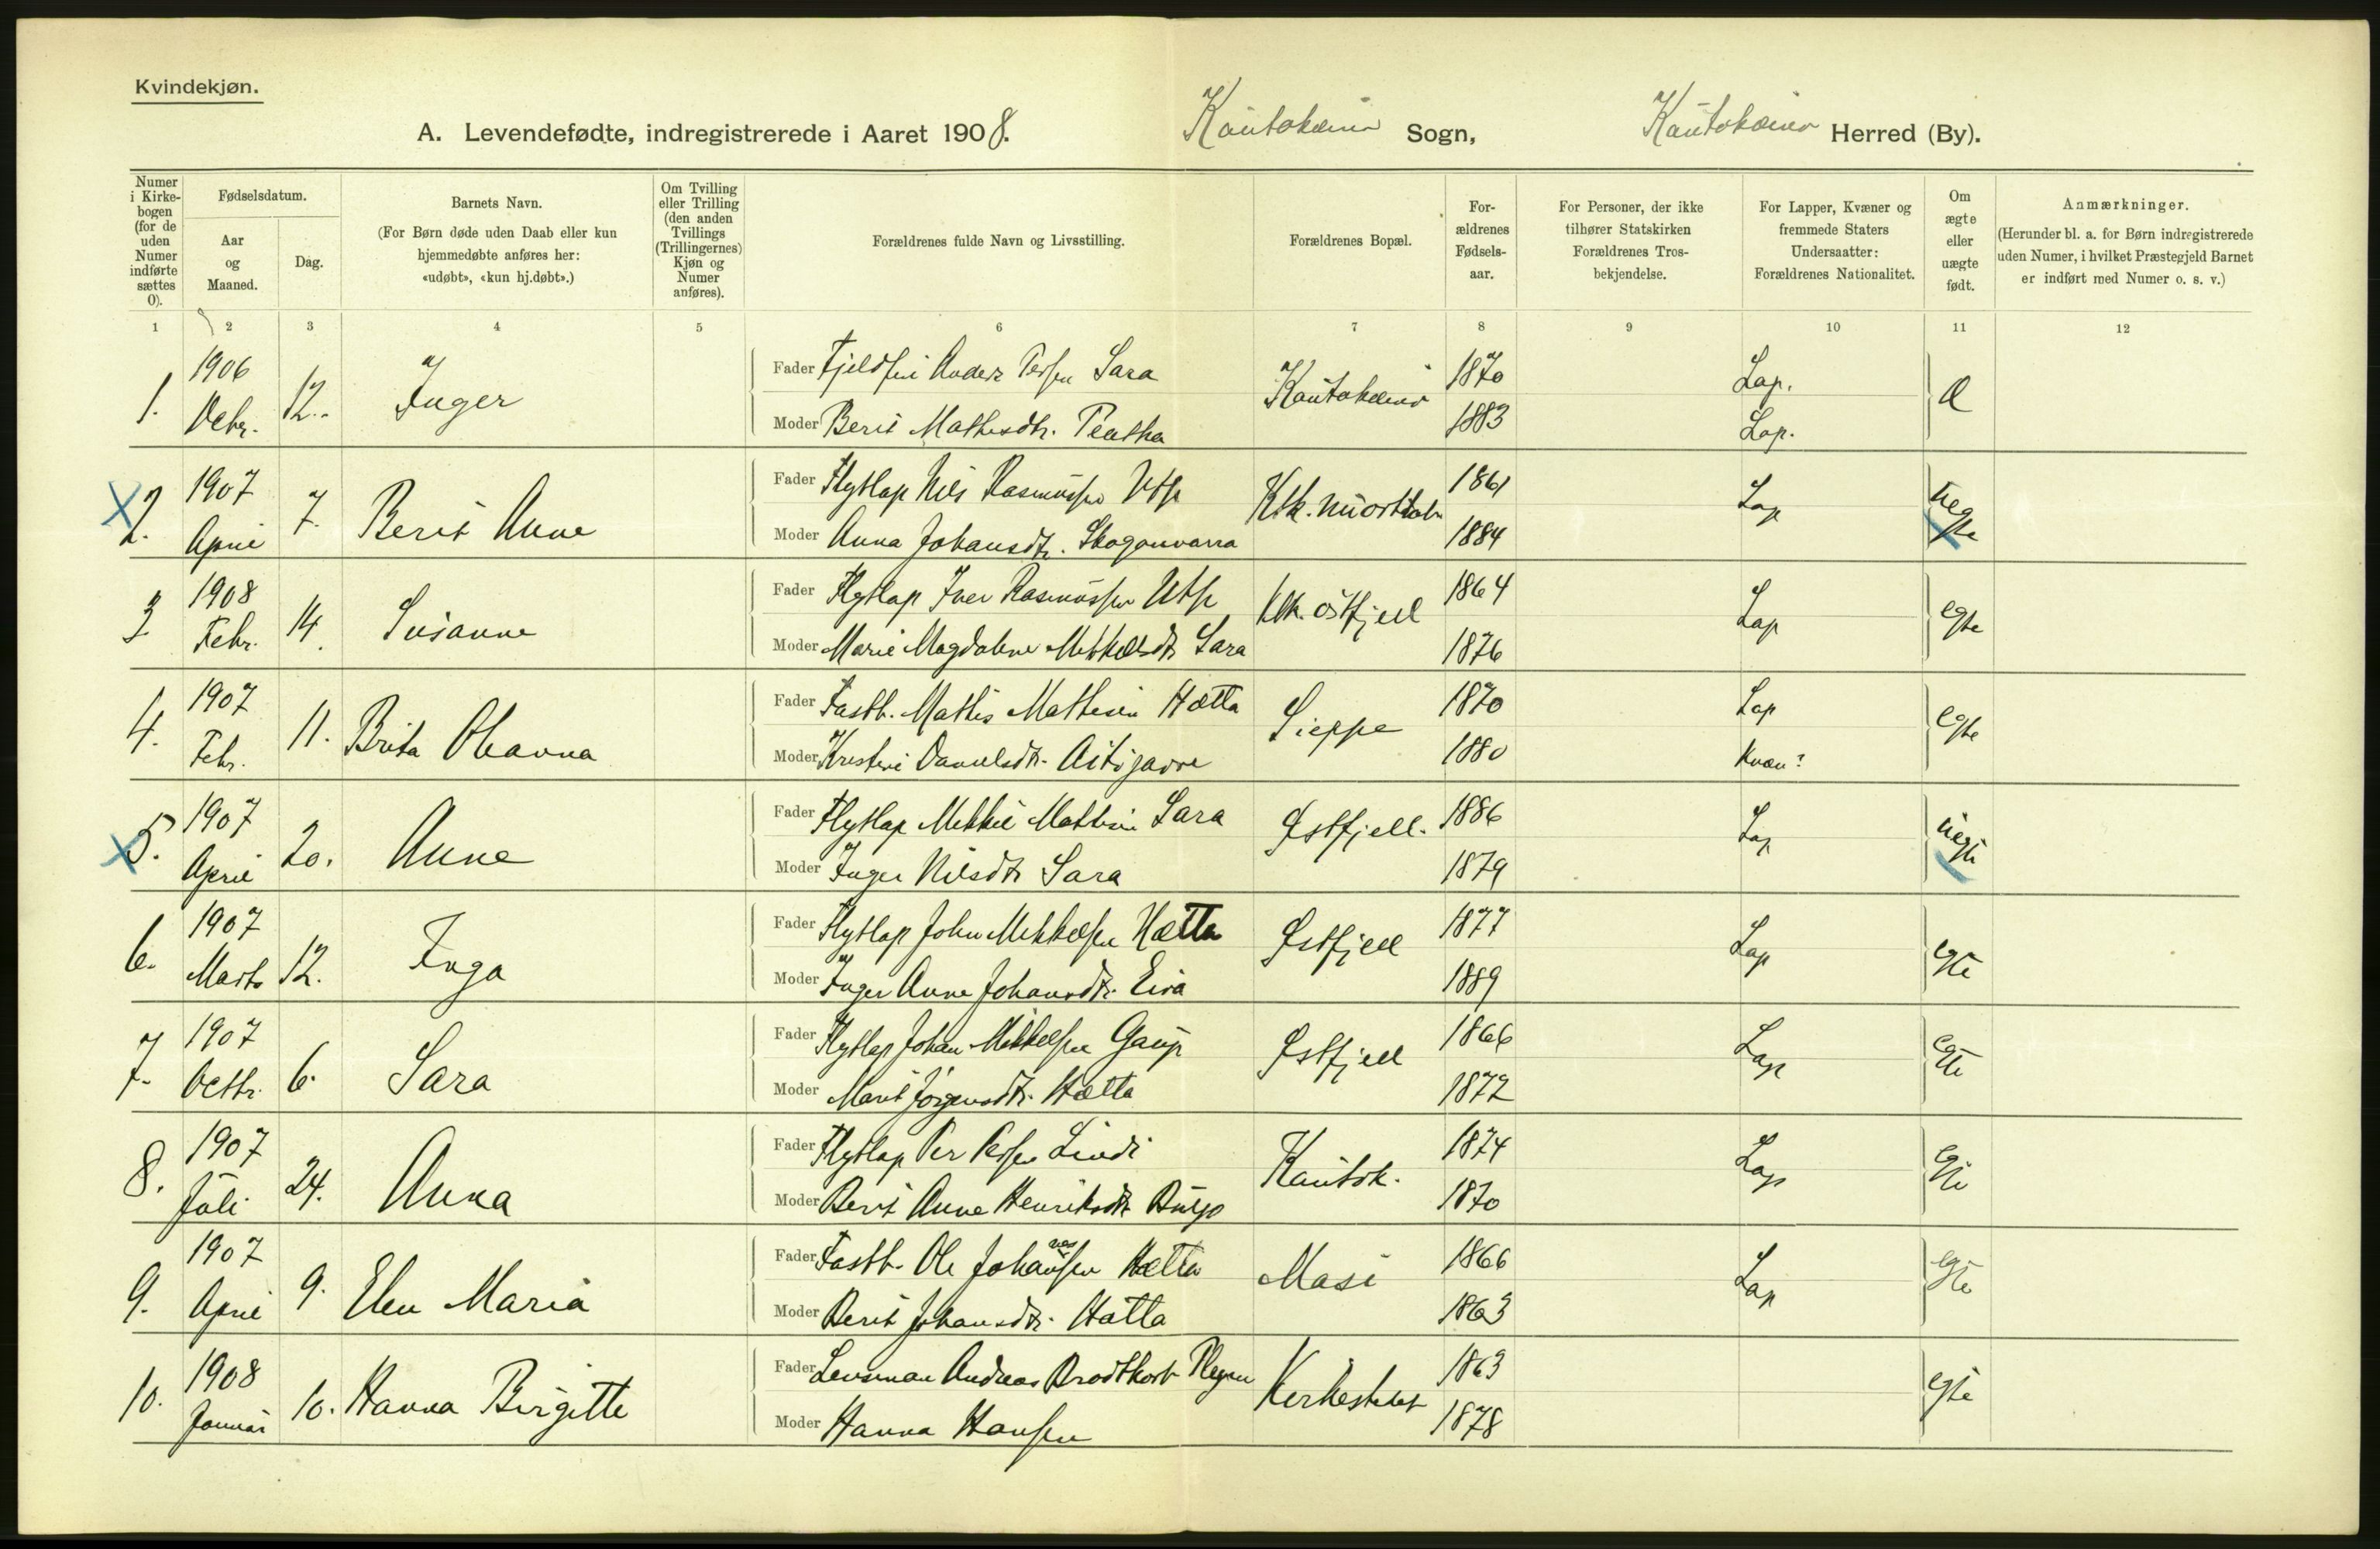 Kvindekjøn.
A. Levendefødte, indregistrerede i Aaret 1908. Kautokeino Sogn, Kautokeino Herred (By).
Numer i Kirkebogen (for de uden Numer indførte sættes 0).
Fødselsdatum.
Aar og Maaned.
Dag.
Barnets Navn.
(For Børn døde uden Daab eller kun hjemmedøbte anføres her: «udøbt», «kun hj.døbt».)
Om Tvilling eller Trilling (den anden Tvillings (Trillingernes) Kjøn og Numer anføres).
Forældrenes fulde Navn og Livsstilling.
Forældrenes Bopæl.
Forældrenes Fødselsaar.
For Personer, der ikke tilhører Statskirken Forældrenes Trosbekjendelse.
For Lapper, Kvæner og fremmede Staters Undersaatter: Forældrenes Nationalitet.
Om ægte eller uægte født.
Anmærkninger.
(Herunder bl. a. for Børn indregistrerede uden Numer, i hvilket Præstegjeld Barnet er indført med Numer o. s. v.)
1 2 3 4 5 6 7 8 9 10 11 12
1. 1906 Debr. 12. Inger Fader Fjeldfin Anders Persen Sara Kautokeino 1870 Lap.
Moder Berit Mathisdtr. 1883 Lap.
2. 1907 April 7. Berit Anne Fader Flytlap Nils Rasmussen Utsi 1861 Lap uegte
Moder Anna Johansdtr. Skoganvarra 1884
3 1908 Febr. 14. Susanne Fader Flytlap Iver Rasmussen Utsi Ktk. östfjell 1864 Lap egte
Moder Marie Magdalene Mikkelsdtr Sara 1876
4. 1907 Febr. 11. Brita Olianna Fader Fastb. Mathis Mathisen Hætta Sieppe 1870 Lap egte
Moder Kristine Danielsdtr. 1880 Kvæn?
5. 1907 April 20. Anne Fader Flytlap Mikkel Mathisen Sara Østfjell. 1886 Lap uegte
Moder Inger Nilsdtr Sara 1879
6. 1907 Marts 12. Inga Fader Flytlap John Mikkelsen Hætta Østfjell 1877 Lap egte
Moder Inger Anne Johansdtr. Eira 1889
7. 1907 Octbr. 6. Sara Fader Flytlap Johan Mikkelsen Gaup Østfjell 1866 Lap egte
Moder Marit Jörgensdtr. Hætta 1872
8. 1907 Juli 24. Anna Fader Flytlap Per Persen Lindi Kautok. 1874 Lap egte
Moder Berit Anne Henriksdtr Buljo 1870
9. 1907 April 9. Elen Maria Fader Fastb. Ole Johannesen Hætta Masi 1866 Lap egte
Moder Berit Johansdtr. Hætta 1863
10. 1908 Januar 10. Hanna Birgitte Fader Lensman Andreas Brodtkorb Kirkestedet 1863 egte
Moder Hanna Hansen 1878